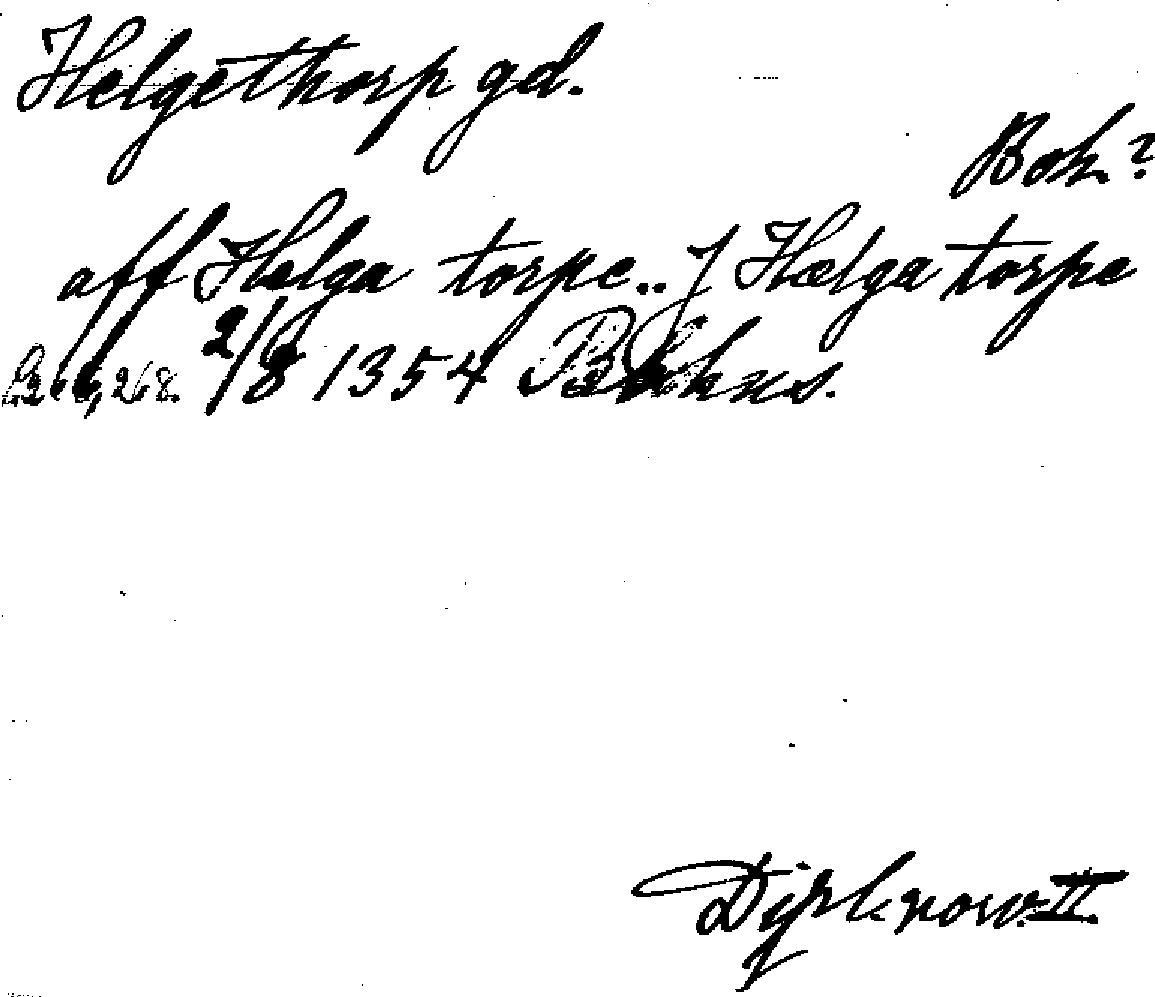 Helgethorp gd.
Boh.?
aff Helga torpe.. J Hælga torpe
268. 2/8 1354 Bohus.
Dipl. norv. II.